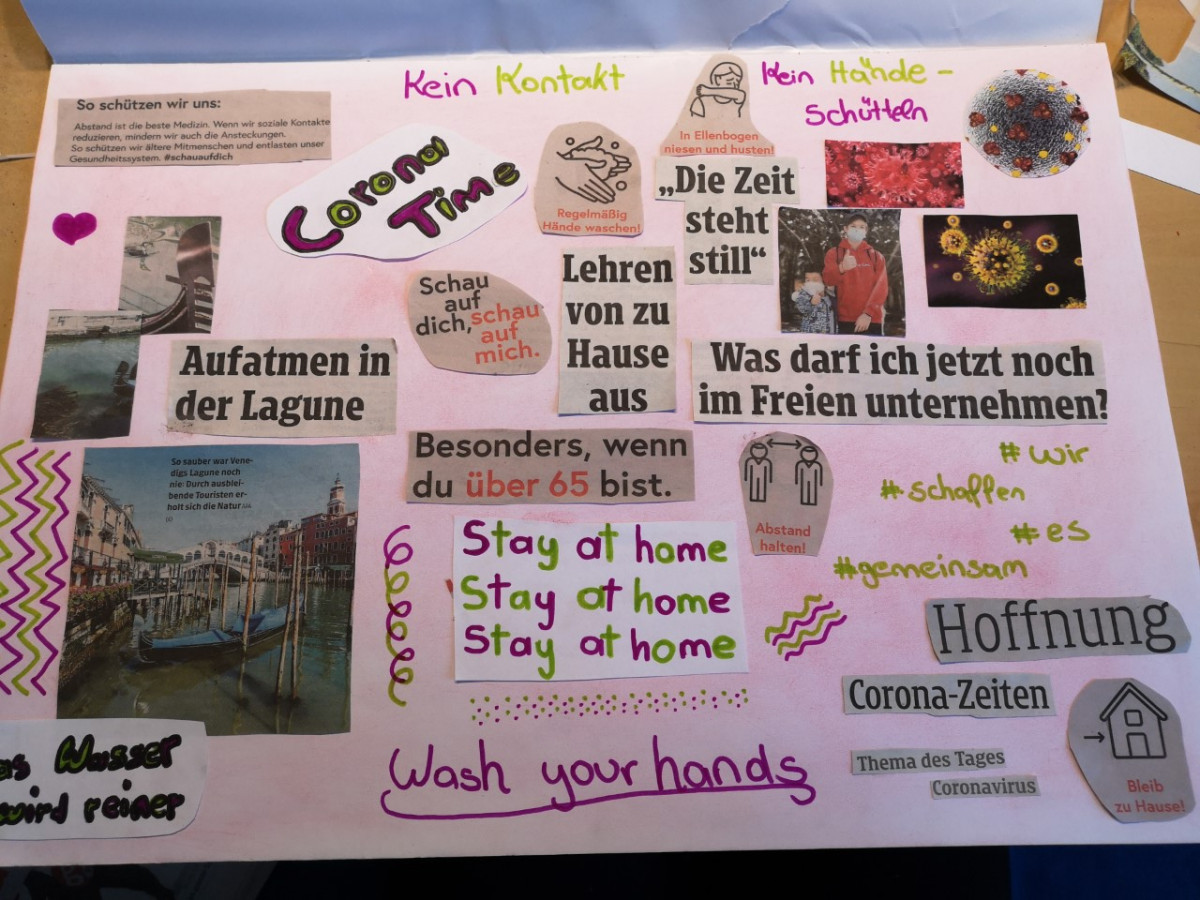 Kein Kontakt
Kein Hände-
Schütteln
So schützen wir uns:
Abstand ist die beste Medizin. Wenn wir soziale Kontakte
reduzieren, mindern wir auch die Ansteckungen.
So schützen wir ältere Mitmenschen und entlasten unser
Gesundheitssystem. #schauaufdich
Corona
Time
Regelmäßig
Hände waschen!
In Ellenbogen
niesen und husten!
„Die Zeit
steht
still“
Schau
auf
dich, schau
auf
mich.
Lehren
von zu
Hause
aus
Aufatmen in
der Lagune
Was darf ich jetzt noch
im Freien unternehmen?
Besonders, wenn
du über 65 bist.
Abstand
halten!
# wir
# schaffen
# es
#gemeinsam
So sauber war Vene-
digs Lagune noch
nie: Durch ausblei-
bende Touristen er-
holt sich die Natur
Stay at home
Stay at home
Stay at home
Hoffnung
Corona-Zeiten
Thema des Tages
Coronavirus
Bleib
zu Hause!
Wash your hands
as Wasser
wird reiner